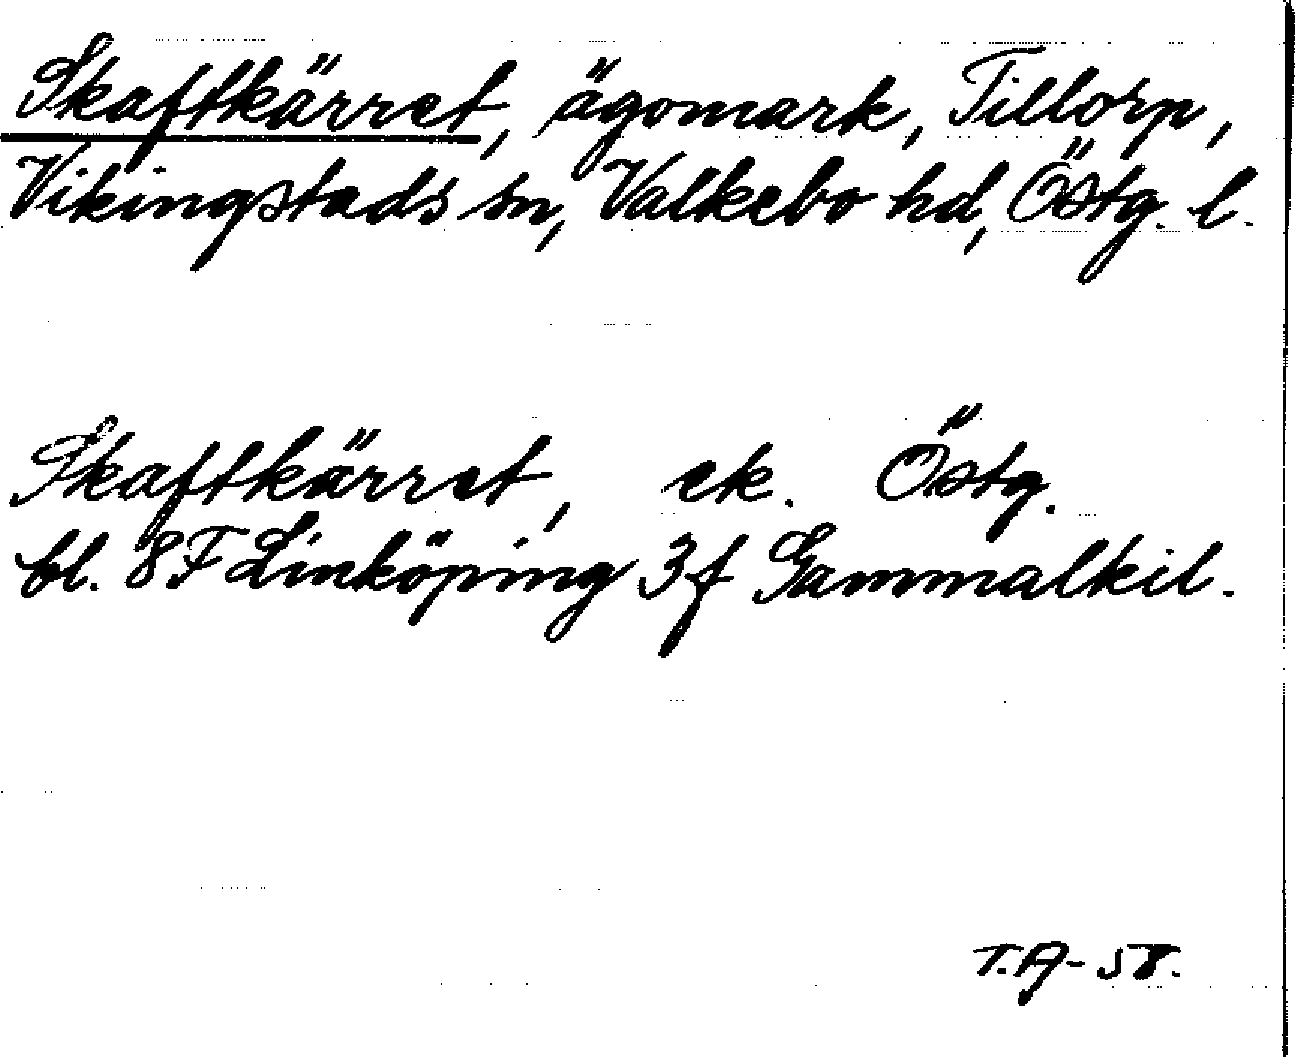 Skaftkärret, ägomark, Tillorp,
Vikingstads sn, Valkebo hd, Östg. l.
Skaftkärret, ek. Östg.
bl. 8F Linköping 3f Gammalkil.
T.A-58.